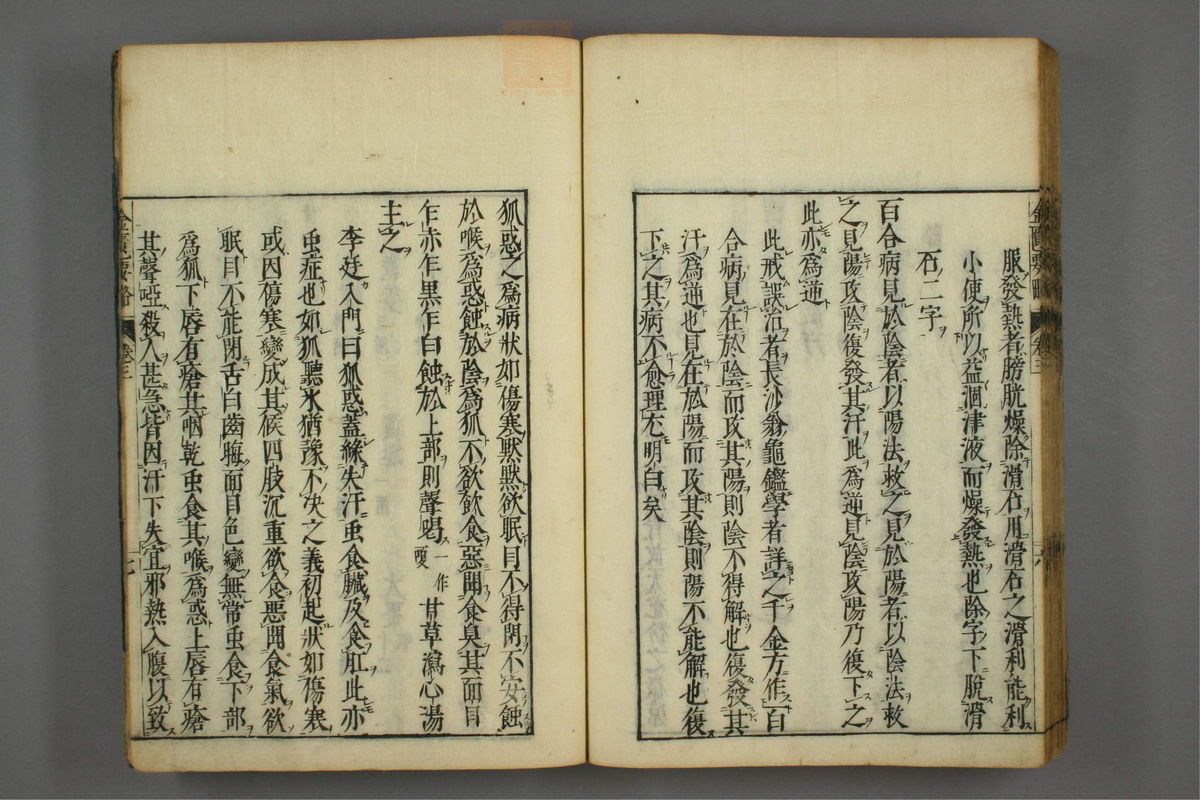 服發熱者膀胱燥除滑石用滑石之滑利能利
小便所以益涸津液而燥發熱也除字下脫滑
石二字
百合病見於陰者以陽法救之見於陽者以陰法救
之見陽攻陰復發其汗此爲逆見陰攻陽乃復下之
此亦爲逆
此戒誤治者長沙翁龜鑑學者詳之千金方作百
合病見在於陰而攻其陽則陰不得解也復發其
汗爲逆也見在於陽而攻其陰則陽不能解也復
下之其病不愈理尤明白矣
金匱要略 卷三 六
狐惑之爲病狀如傷寒默默欲眠目不得閉不安蝕
於喉爲惑蝕於陰爲狐不欲飲食惡聞食臭其面目
乍赤乍黑乍白蝕於上部則聲喝一作嗄甘草瀉心湯
主之
李梴入門曰狐惑蓋緣失汗虫食臟及食肛此亦
虫症也如狐聽氷猶豫不决之義初起狀如傷寒
或因傷寒變成其候四肢沉重欲食惡聞食氣欲
眠目不能閉舌白齒晦面目色變無常虫食下部
爲狐下唇有瘡其咽乾虫食其喉爲惑上唇有瘡
其聲啞殺人甚急皆因汗下失宜邪熱入腹以致
金匱要略 卷三 七